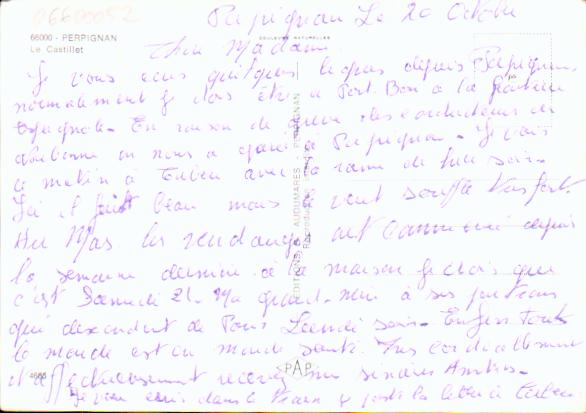 06600052
Perpignan Le 20 Octobre
66000 - PERPIGNAN
Le Castillet
COULEURS NATURELLES
Chère Madame
Je vous écris quelques lignes depuis Perpignan
normalement je dois être à Port Bou à la frontière
espagnole. En raison de grève des conducteurs de
Narbonne on nous a garé à Perpignan. Je vais
ce matin à Cerbère avec la rame de hier soir.
Ici il fait beau mais le vent souffle très fort.
Au Mas les vendanges ont commencé depuis
la semaine dernière à la maison je crois que
c'est Samedi 21.
qui descendent de Paris Lundi soir. Enfin tout
le monde est en bonne santé. Très cordialement
et affectueusement recevez mes sincères Amitiés.
Je vous écris dans le train je poste la lettre à Cerbère
EDITIONS D'ART AUDUMARES - PERPIGNAN
PAP